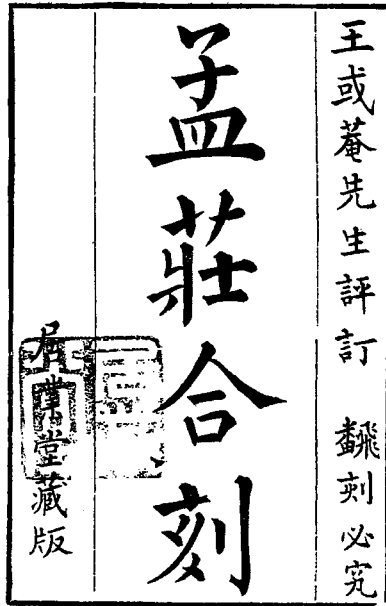 王或菴先生評訂　飜刻必究
孟莊合刻
居業堂藏版